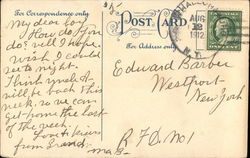 For Correspondence only
POST CARD
For Address only
AUG
1912
N.Y.
My dear
How do you
do? well I hope
wish I could
see to night.
I think we shall
be back this
week, so we can
get home the last
of the week.
Love & kisses
from
Edward Barber
Westport
New York
R F D No 1